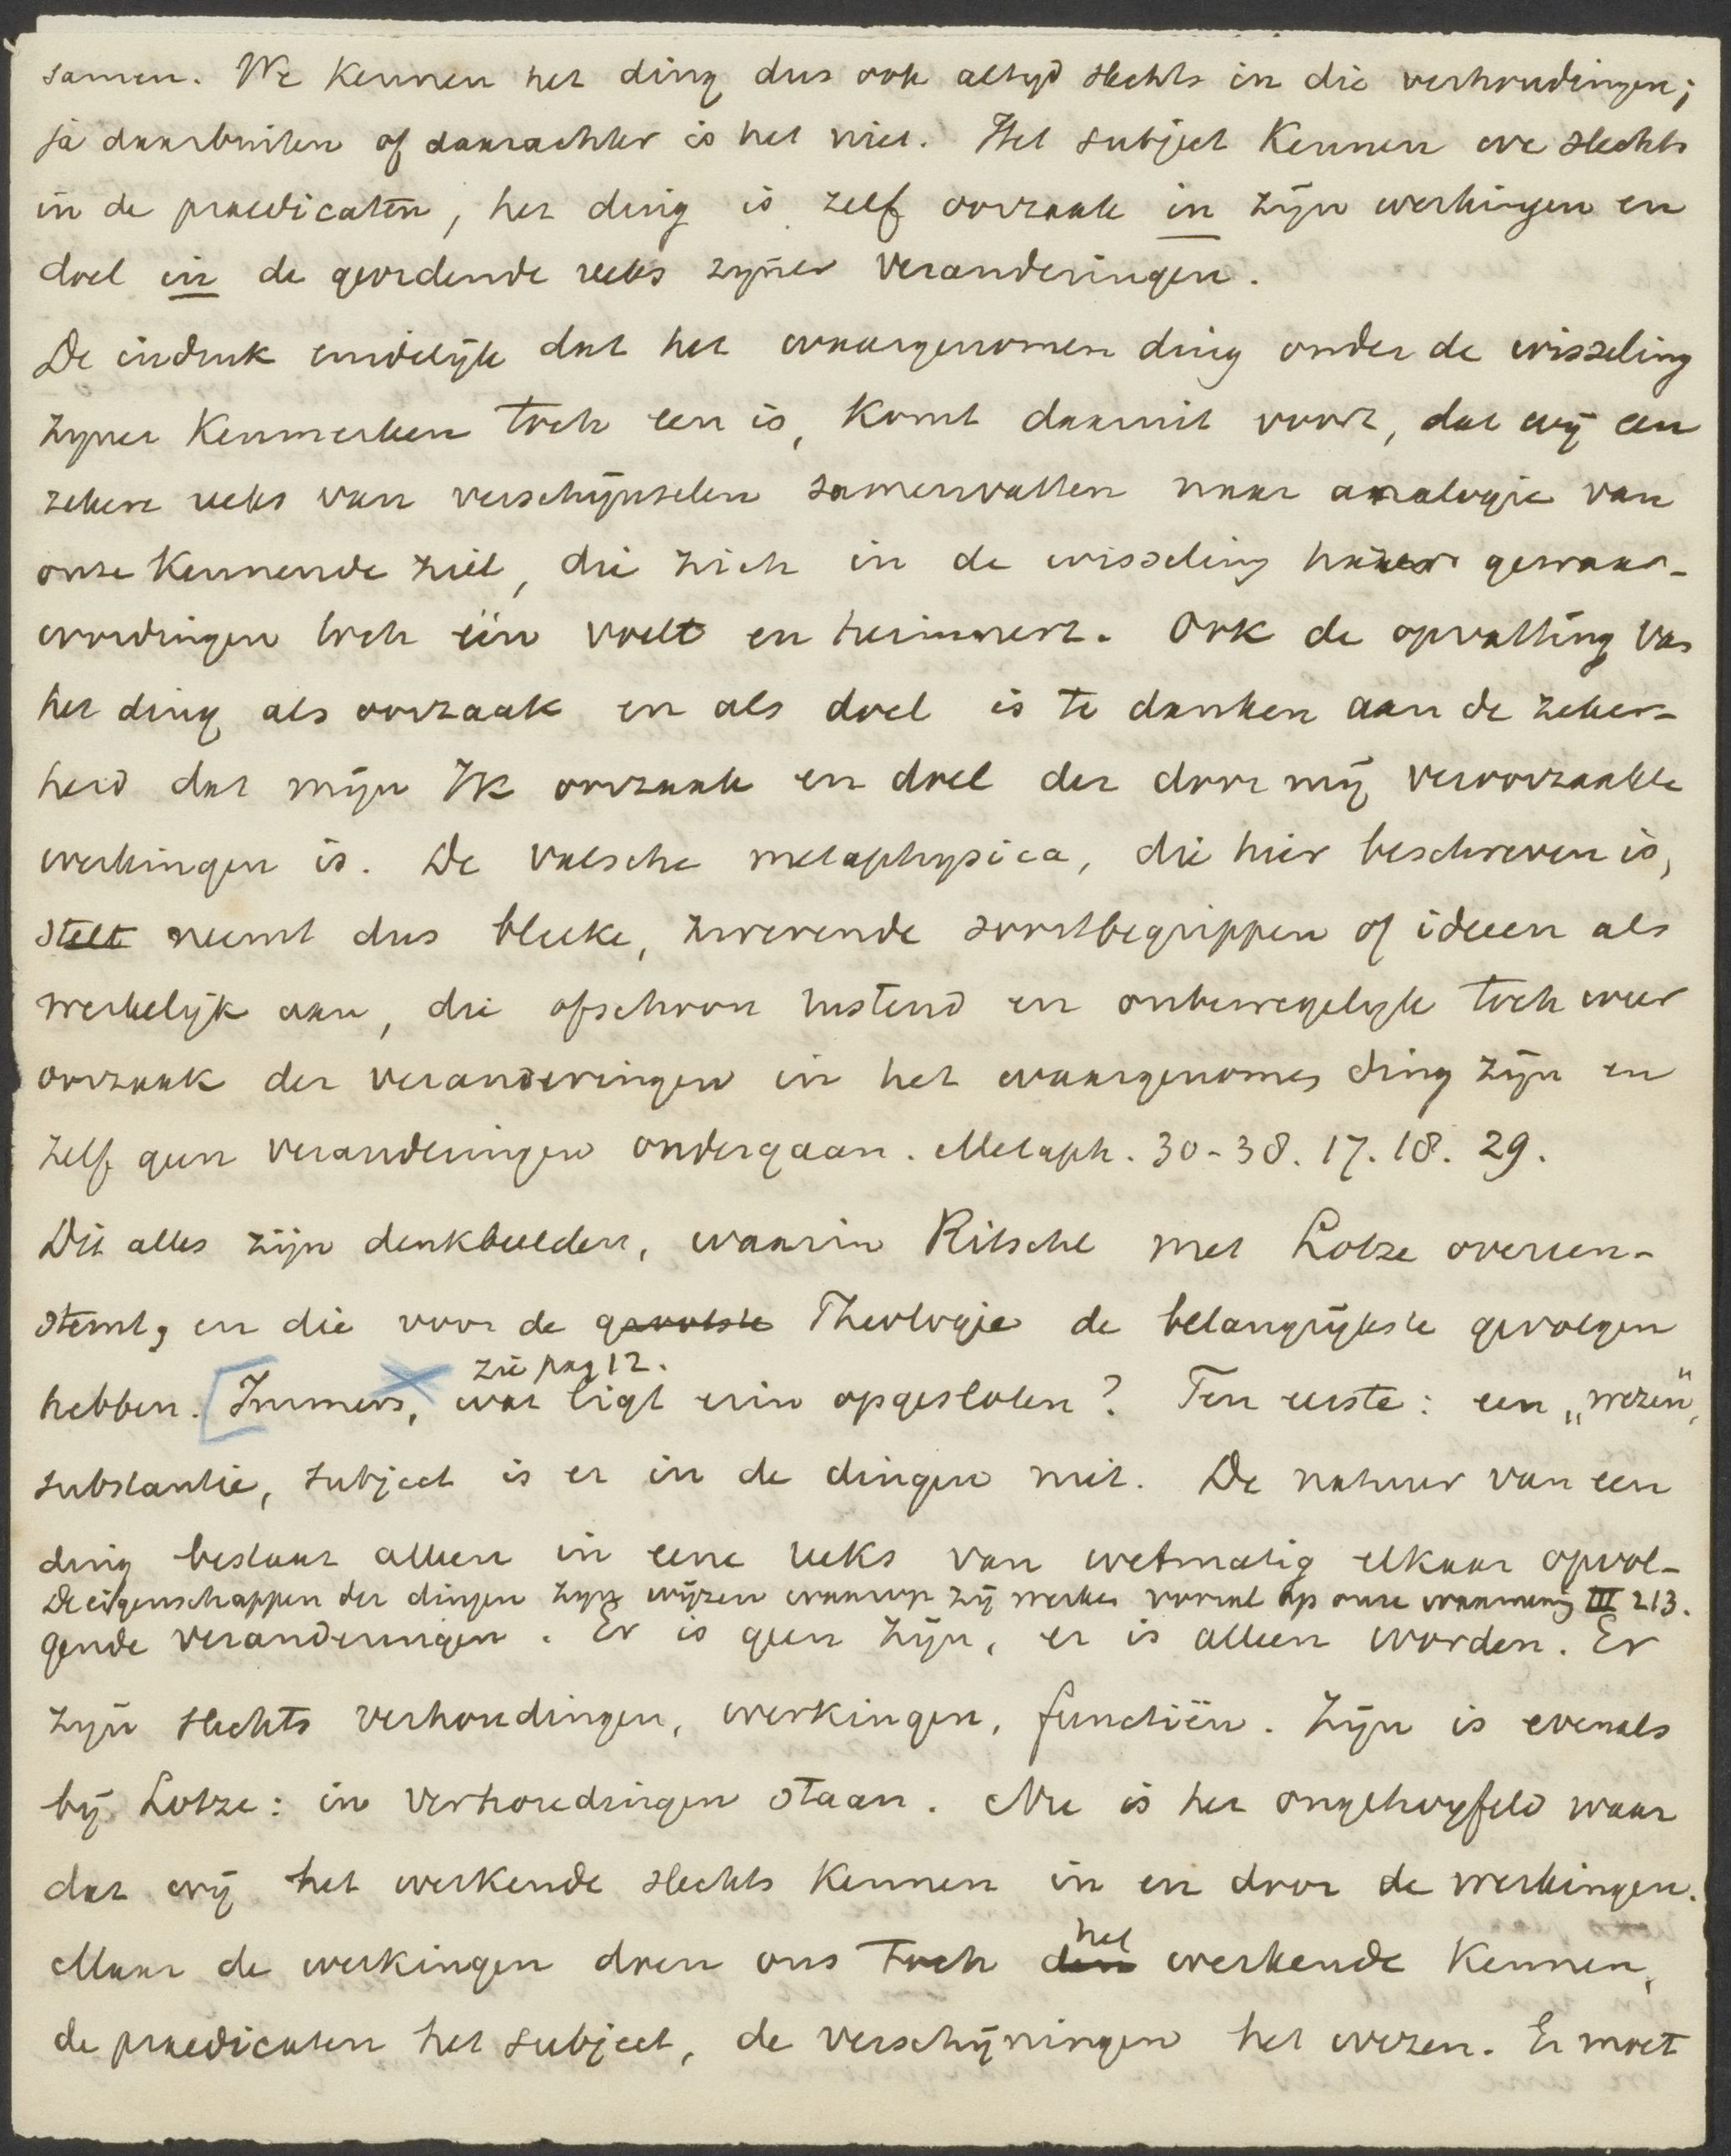 samen. We kennen het ding dus ook altyd slechts in die verhoudingen;
ja daarbuiten of daarachter is het niet. Het subject kennen we slechts
in de praedicaten, het ding is zelf oorzaak in zijn werkingen en
doel in de geordende reeks zijner veranderingen.
De indruk eindelijk dat het waargenomen ding onder de wisseling
zyner kenmerken toch een is, komt daaruit voort, dat wij een
zekere reeks van verschijnselen samenvatten naar analogie van
onze kennende ziel, die zich in de wisseling harer gewaar-
wordingen toch één voelt en herinnert. Ook de opvatting van
het ding als oorzaak en als doel is te danken aan de zeker-
heid dat mijn Ik oorzaak en doel der door mij veroorzaakte
werkingen is. De valsche metaphysica, die hier beschreven is,
stelt neemt dus bleeke, zwevende soortbegrippen of ideeen als
werkelijk aan, die ofschoon rustend en onbewegelijk toch weer
oorzaak der veranderingen in het waargenomen ding zijn en
zelf geen veranderingen ondergaan. Metaph. 30-38. 17. 18. 29.
Dit alles zijn denkbeelden, waarin Ritschl met Lotze overeen-
stemt, en die voor de Theologie de belangrijkste gevolgen
zie pag 12.
hebben. [Immers, wat ligt erin opgesloten? Ten eerste: een „wezen",
substantie, subject is er in de dingen niet. De natuur van een
ding bestaat alleen in eene reeks van wetmatig elkaar opvol-
De eigenschappen der dingen zijn wijzen waarop zij werken vooral op onze waarneming III 213.
gende veranderingen. Er is geen zijn, er is alleen worden. Er
zijn slechts verhoudingen, werkingen, functiën. Zijn is evenals
bij Lotze: in verhoudingen staan. Nu is het ongetwyfeld waar
dat wij het werkende slechts kennen in en door de werkingen.
het
Maar de werkingen doen ons toch den werkende kennen,
de praedicaten het subject, de verschijningen het wezen. Er moet